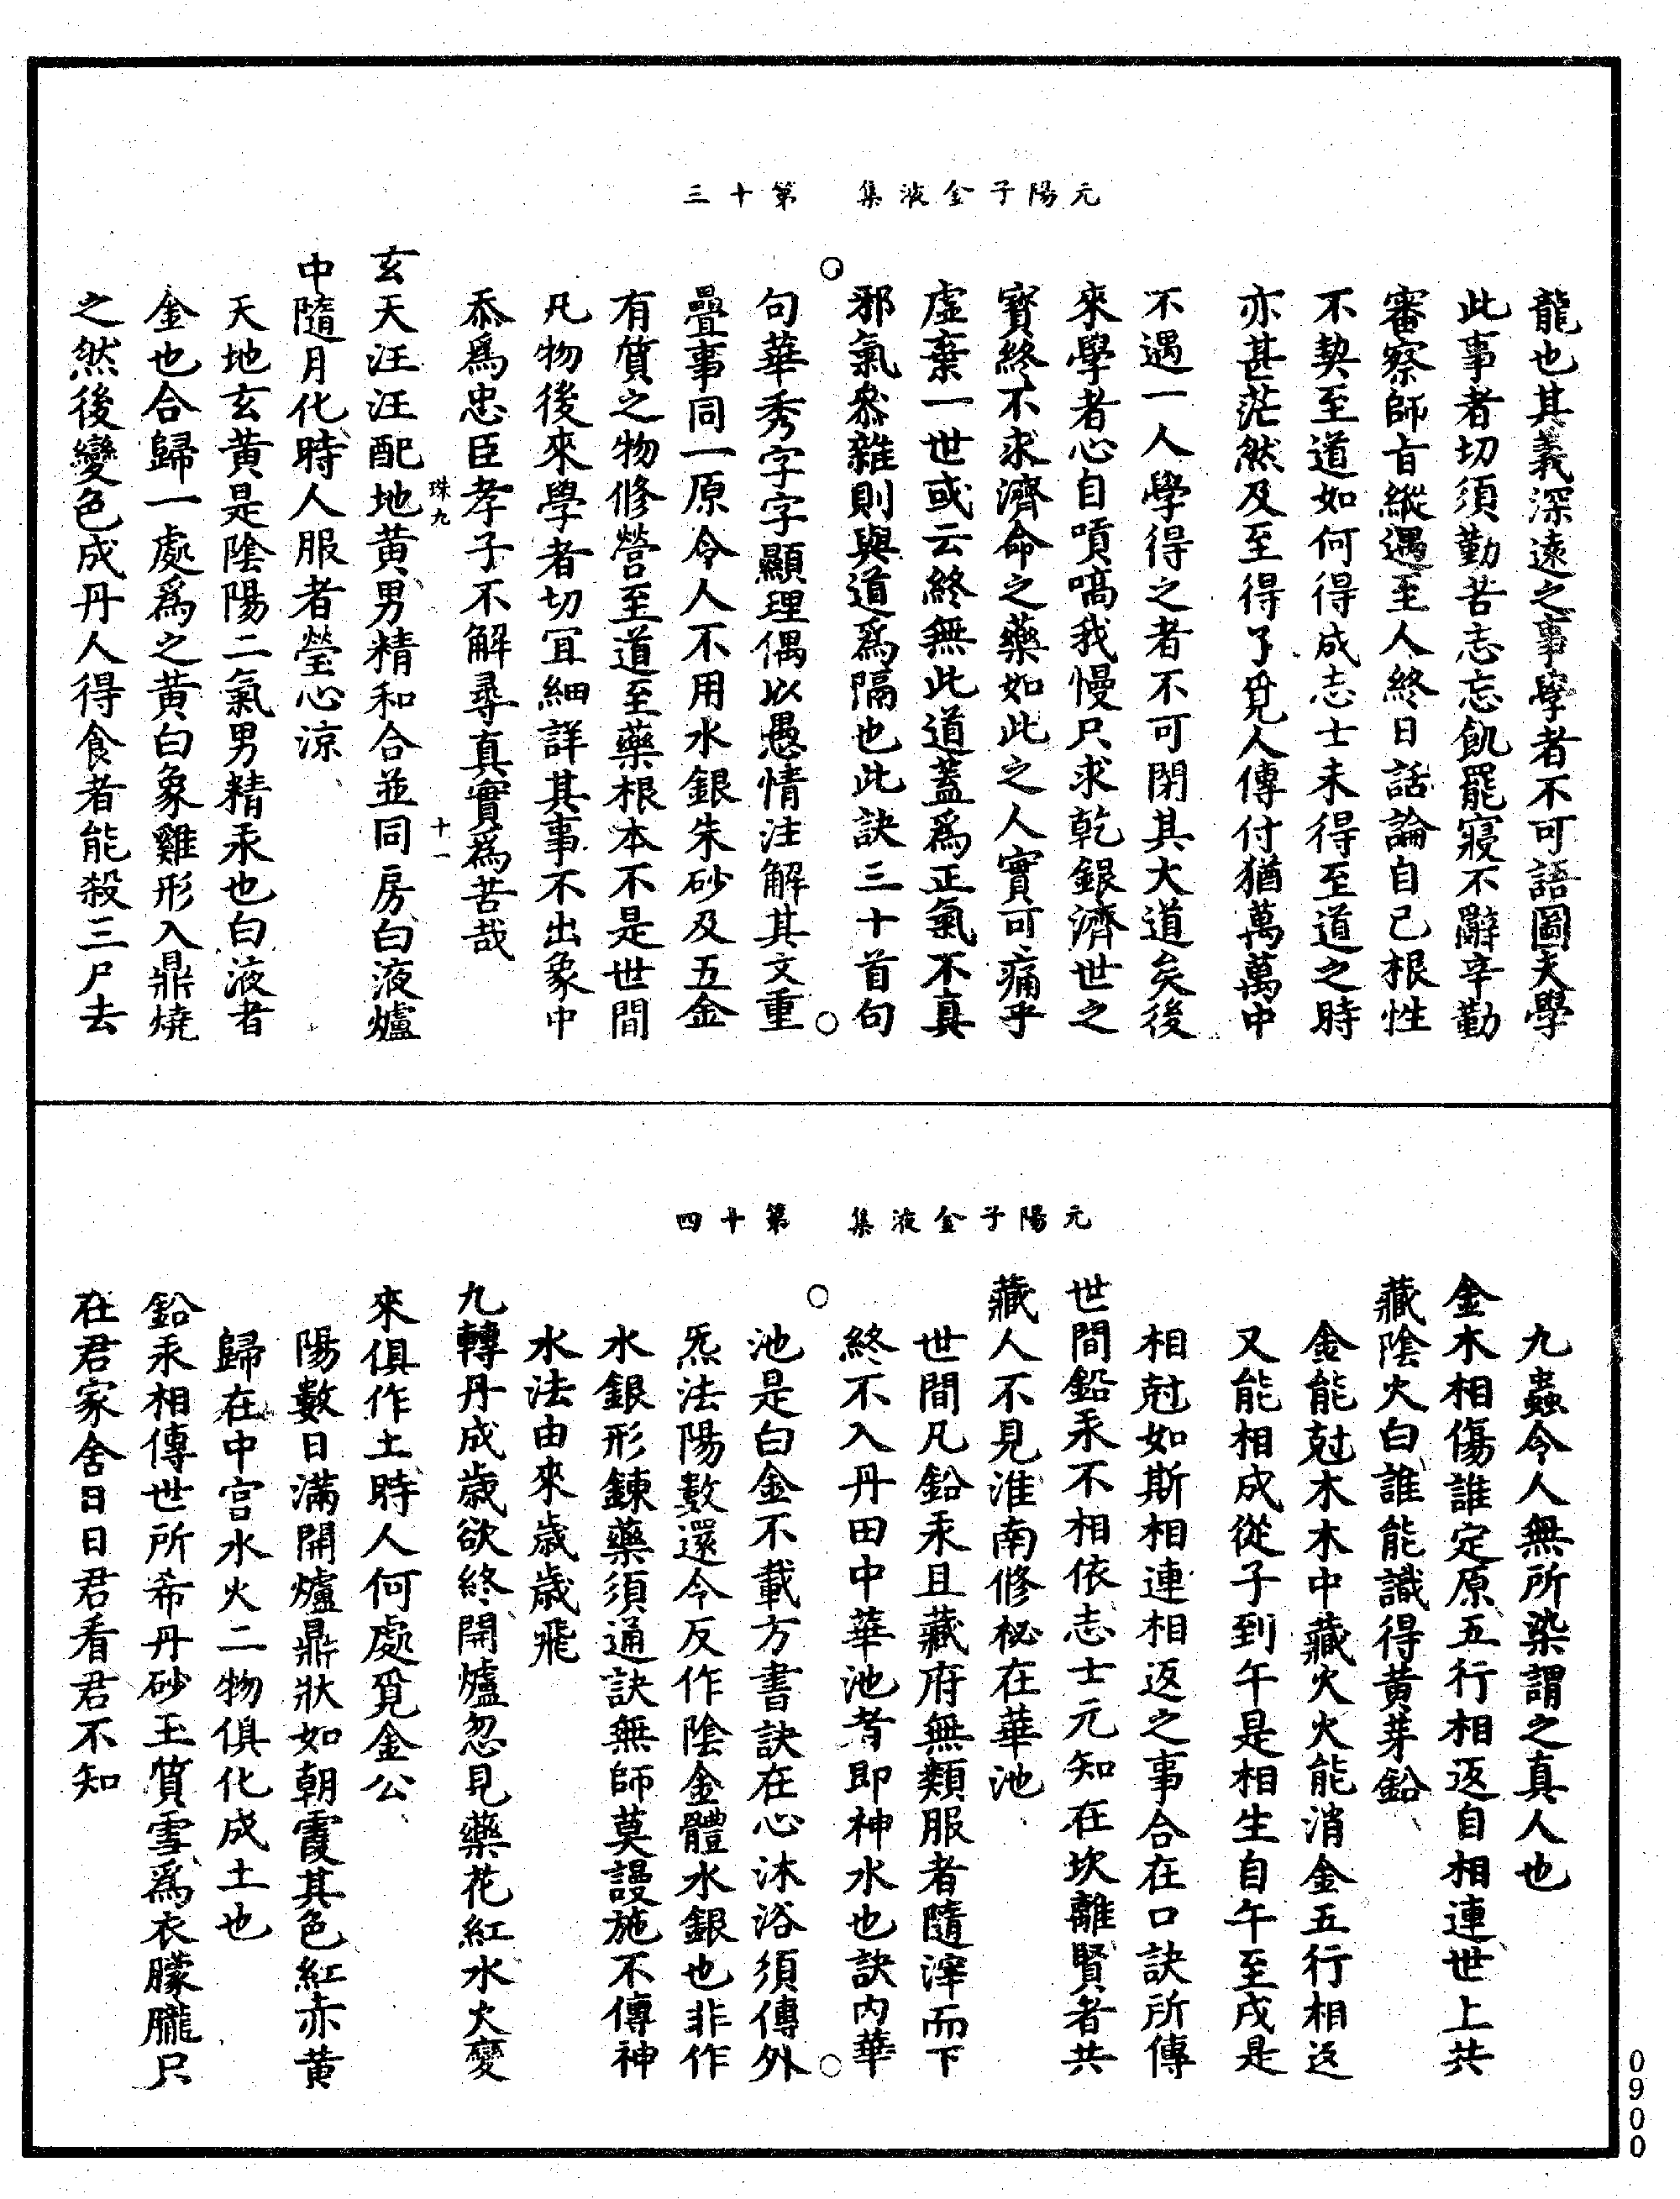 元陽子金液集　第十三
龍也其義深遠之事學者不可語圖夫學
此事者切須勤苦志忘飢罷寢不辭辛勤
審察師旨縱遇至人終日話論自己根性
不契至道如何得成志士未得至道之時
亦甚茫然及至得了覓人傳付猶萬萬中
不遇一人學得之者不可閉其大道矣後
來學者心自嗔嗃我慢只求乾銀濟世之
寶終不求濟命之藥如此之人實可痛乎
虛棄一世或云終無此道蓋為正氣不真
邪氣叅雜則與道為隔也此訣三十首句
句華秀字字顯理偶以愚情注解其文重
疊事同一原令人不用水銀朱砂及五金
有質之物修營至道至藥根本不是世間
凡物後來學者切冝細詳其事不出象中
忝為忠臣孝子不解尋真實為苦哉
珠九　十一
玄天汪汪配地黃男精和合並同房白液爐
中隨月化時人服者瑩心涼
天地玄黃是陰陽二氣男精汞也白液者
金也合歸一處為之黃白象雞形入鼎燒
之然後變色成丹人得食者能殺三尸去
元陽子金液集　第十四
九蟲令人無所染謂之真人也
金木相傷誰定原五行相返自相連世上共
藏陰火白誰能識得黃芽鉛
金能尅木木中藏火火能消金五行相返
又能相成從子到午是相生自午至戌是
相尅如斯相連相返之事合在口訣所傳
世間鉛汞不相依志士元知在坎離賢者共
藏人不見淮南修秘在華池
世間凡鉛汞且藏府無類服者隨滓而下
終不入丹田中華池者即神水也訣內華
池是白金不載方書訣在心沐浴須傳外
炁法陽數還令反作陰金體水銀也非作
水銀形鍊藥須通訣無師莫謾施不傳神
水法由來歲歲飛
九轉丹成歲欲終開爐忽見藥花紅水火變
來俱作土時人何處覓金公
陽數日滿開爐鼎狀如朝霞其色紅赤黃
歸在中宮水火二物俱化成土也
鉛汞相傳世所希丹砂玉質雪為衣朦朧只
在君家舍日日君看君不知
0900